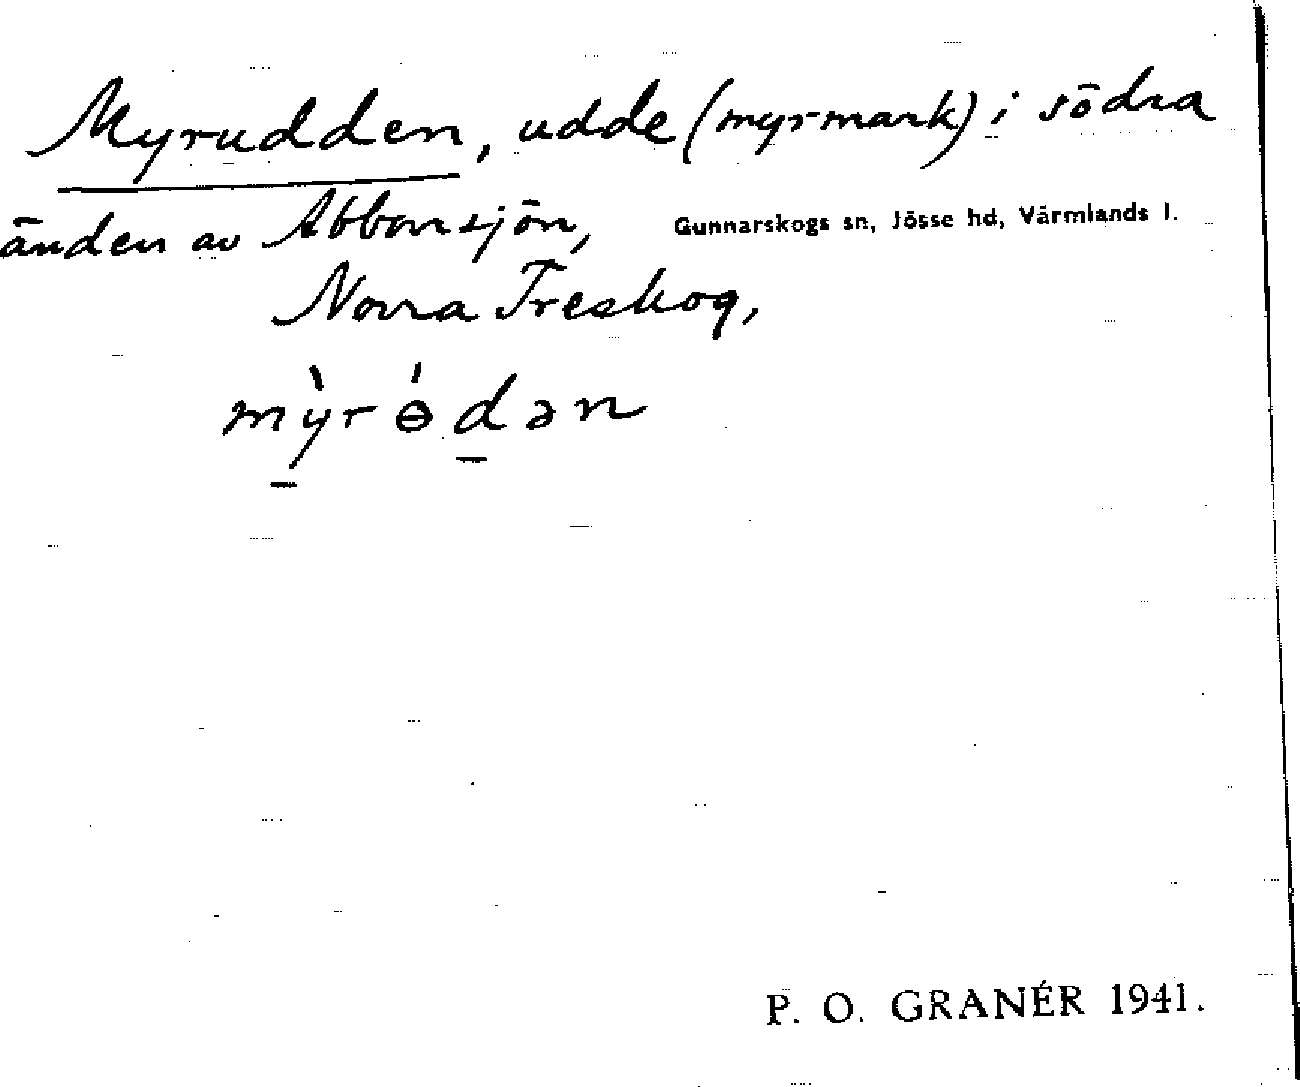 Myrudden, udde (myrmark) i södra
änden av Abborrsjön, Gunnarskogs sn, Jösse hd, Värmlands l.
Norra Treskog,
mỳrɵ́dən
P. O. GRANÉR 1941.